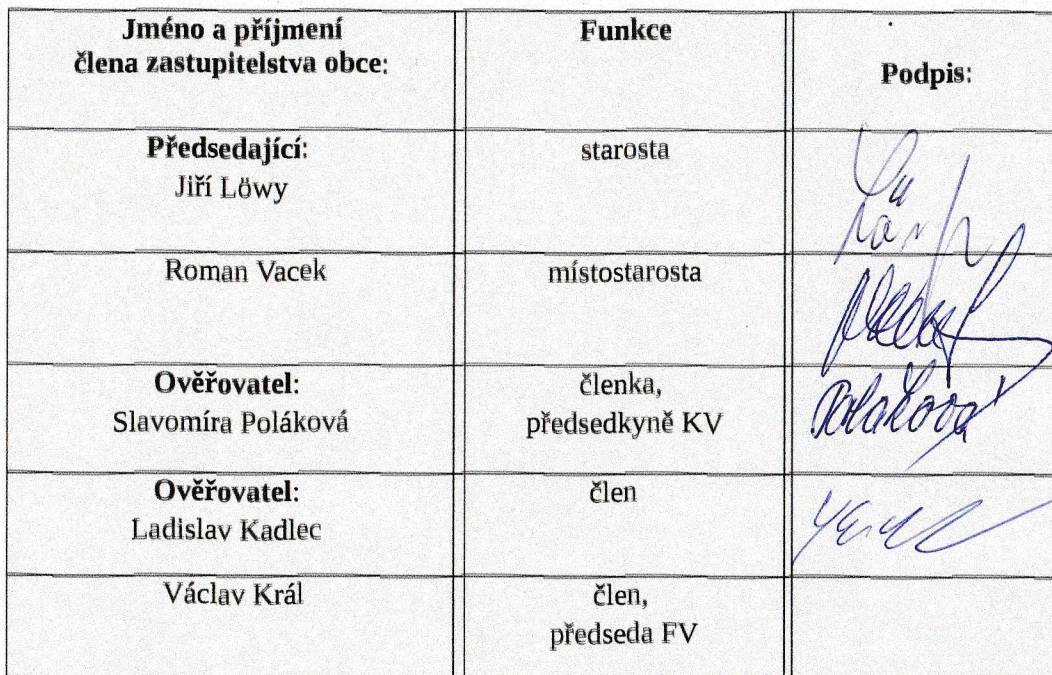 Jméno a příjmení
člena zastupitelstva obce:
Funkce
Podpis:
Předsedající:
Jiří Löwy
starosta
Roman Vacek
místostarosta
Ověřovatel:
Slavomíra Poláková
členka,
předsedkyně KV
Poláková
Ověřovatel:
Ladislav Kadlec
člen
Václav Král
člen,
předseda FV